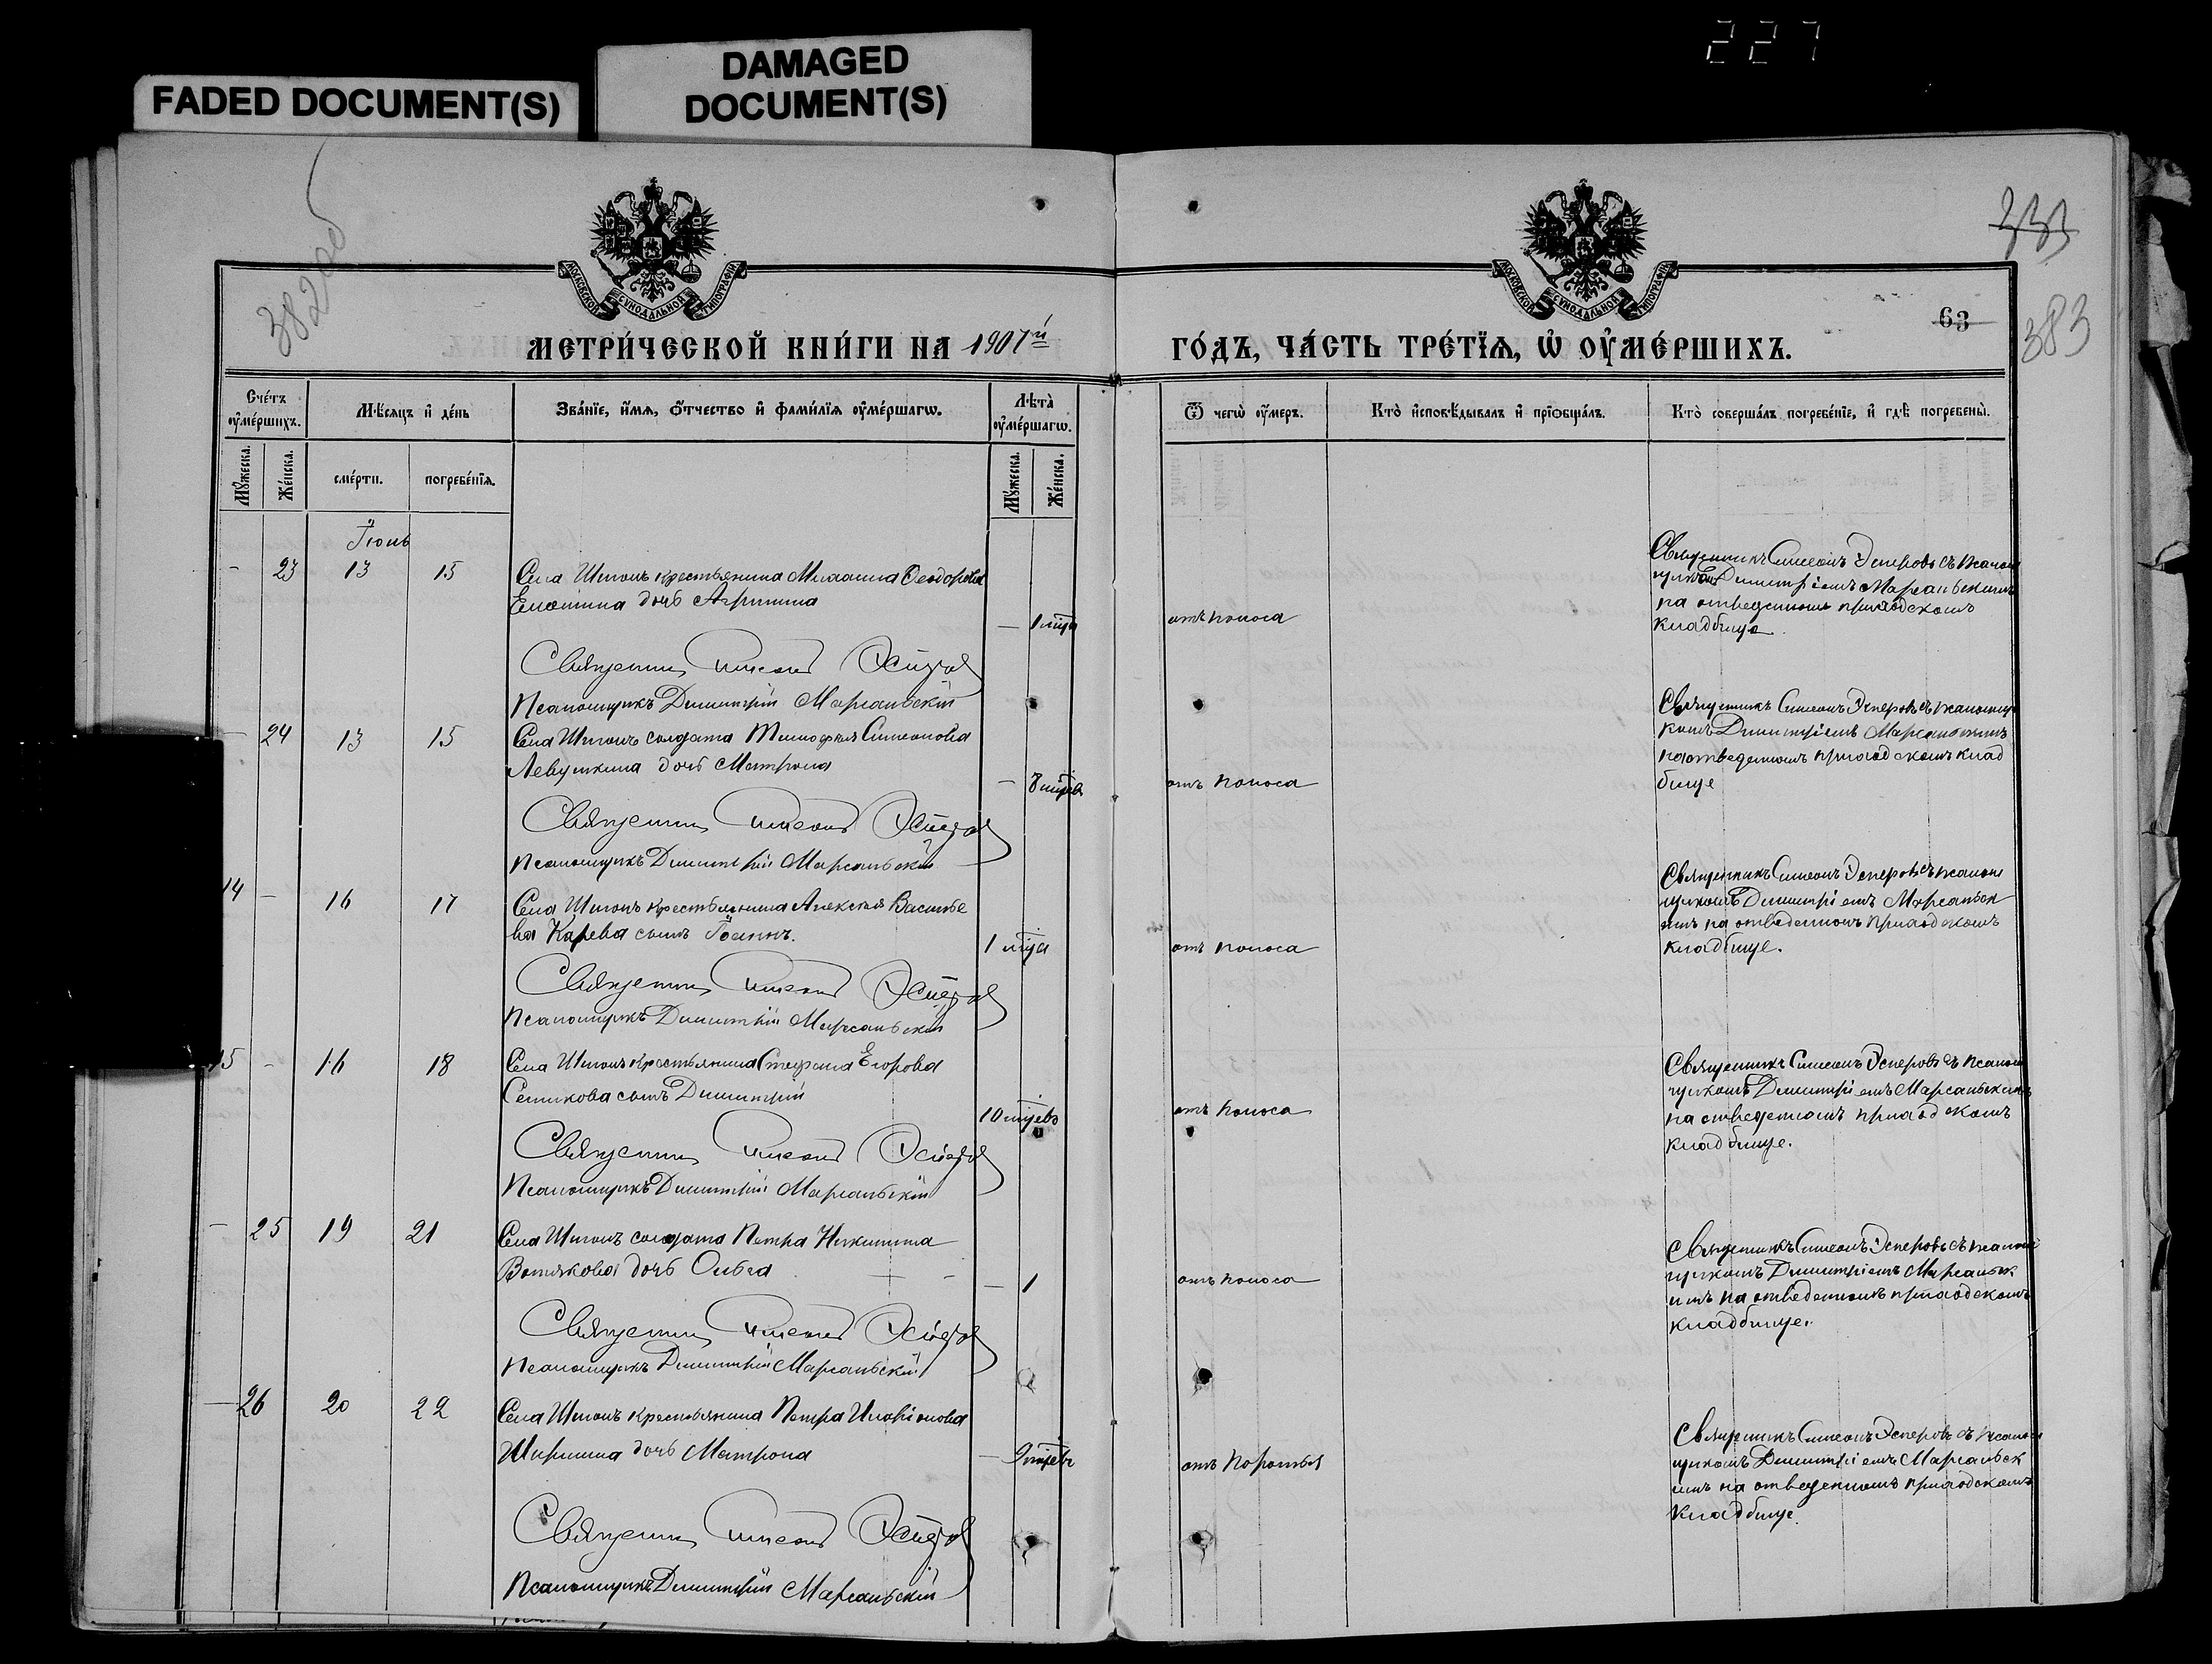 FADED DOCUMENT(S)
DAMAGED
DOCUMENT(S)
227
382 об
333
383
63
МОСКОВСКОЙ СѴНОДАЛЬНОЙ ТИПОГРАФІИ
МОСКОВСКОЙ СѴНОДАЛЬНОЙ ТИПОГРАФІИ
МЕТРИ́ЧЕСКОЙ КНИ́ГИ НА 1907й
ГО́ДЪ, ЧА́СТЬ ТРЕ́ТЇѦ, Ѡ҆ ОУ҆МЕ́РШИХЪ.
Сче́тъ оу҆ме́ршихъ.
Мѣ́сяцъ и҆ де́нь
Зва́нїе, и҆́мѧ, ѻ҆́тчество и҆ фами́лїѧ оу҆ме́ршагѡ.
Лѣ́та̀ оу҆ме́ршагѡ.
Ѿ чегѡ̀ оу҆́меръ.
Кто̀ и҆сповѣ́дывалъ и҆ прїѡбща́лъ.
Кто̀ соверша́лъ погребе́нїе, и҆ гдѣ̀ погребены̀.
Мꙋ́жеска.
Же́нска.
сме́рти.
погребе́нїѧ.
Мꙋ́жеска.
Же́нска.
Іюнь
- 23 13 15 Села Шигонъ крестьянина Михаила Ѳеодорова
дочь Агрипина
— 1 мѣсца
отъ поноса
Священникъ Симеонъ Эсперовъ съ псалом
щикомъ Димитріемъ Марсальскимъ
на отведенномъ приходскомъ
кладбище.
Священникъ Симеонъ Эсперовъ
Псаломщикъ Димитрій Марсальскій
— 24 13 15 Села Шигонъ солдата Тимофея Симеонова
Левушкина дочь Матрона
— 8 мѣсцевъ
отъ поноса
Священникъ Симеонъ Эсперовъ съ псаломщи
комъ Димитріемъ Марсальскимъ
на отведенномъ приходскомъ клад
бище
Священникъ Симеонъ Эсперовъ
Псаломщикъ Димитрій Марсальскій
14 — 16 17 Села Шигонъ крестьянина Алексея Василье
ва Карева сынъ Іоаннъ.
1 мѣсца
отъ поноса
Священникъ Симеонъ Эсперовъ съ псалом
щикомъ Димитріемъ Марсальск
имъ на отведенномъ приходскомъ
кладбище.
Священникъ Симеонъ Эсперовъ
Псаломщикъ Димитрій Марсальскій
15 - 16 18 Села Шигонъ крестьянина Стефана Егорова
Сенникова сынъ Димитрій
10 мѣсцевъ
отъ поноса
Священникъ Симеонъ Эсперовъ съ псалом
щикомъ Димитріемъ Марсальскимъ
на отведенномъ приходскомъ
кладбище.
Священникъ Симеонъ Эсперовъ
Псаломщикъ Димитрій Марсальскій
— 25 19 21 Села Шигонъ солдата Петра Никитина
Вотякова дочь Ольга
— 1
отъ поноса
Священникъ Симеонъ Эсперовъ съ псалом
щикомъ Димитріемъ Марсальск
имъ на отведенномъ приходскомъ
кладбище.
Священникъ Симеонъ Эсперовъ
Псаломщикъ Димитрій Марсальскій
— 26 20 22 Села Шигонъ крестьянина Петра Иларіонова
Ширшина дочь Матрона
— 9 мѣсцевъ
отъ
Священникъ Симеонъ Эсперовъ съ псалом
щикомъ Димитріемъ Марсальск
имъ на отведенномъ приходскомъ
кладбище.
Священникъ Симеонъ Эсперовъ
Псаломщикъ Димитрій Марсальскій